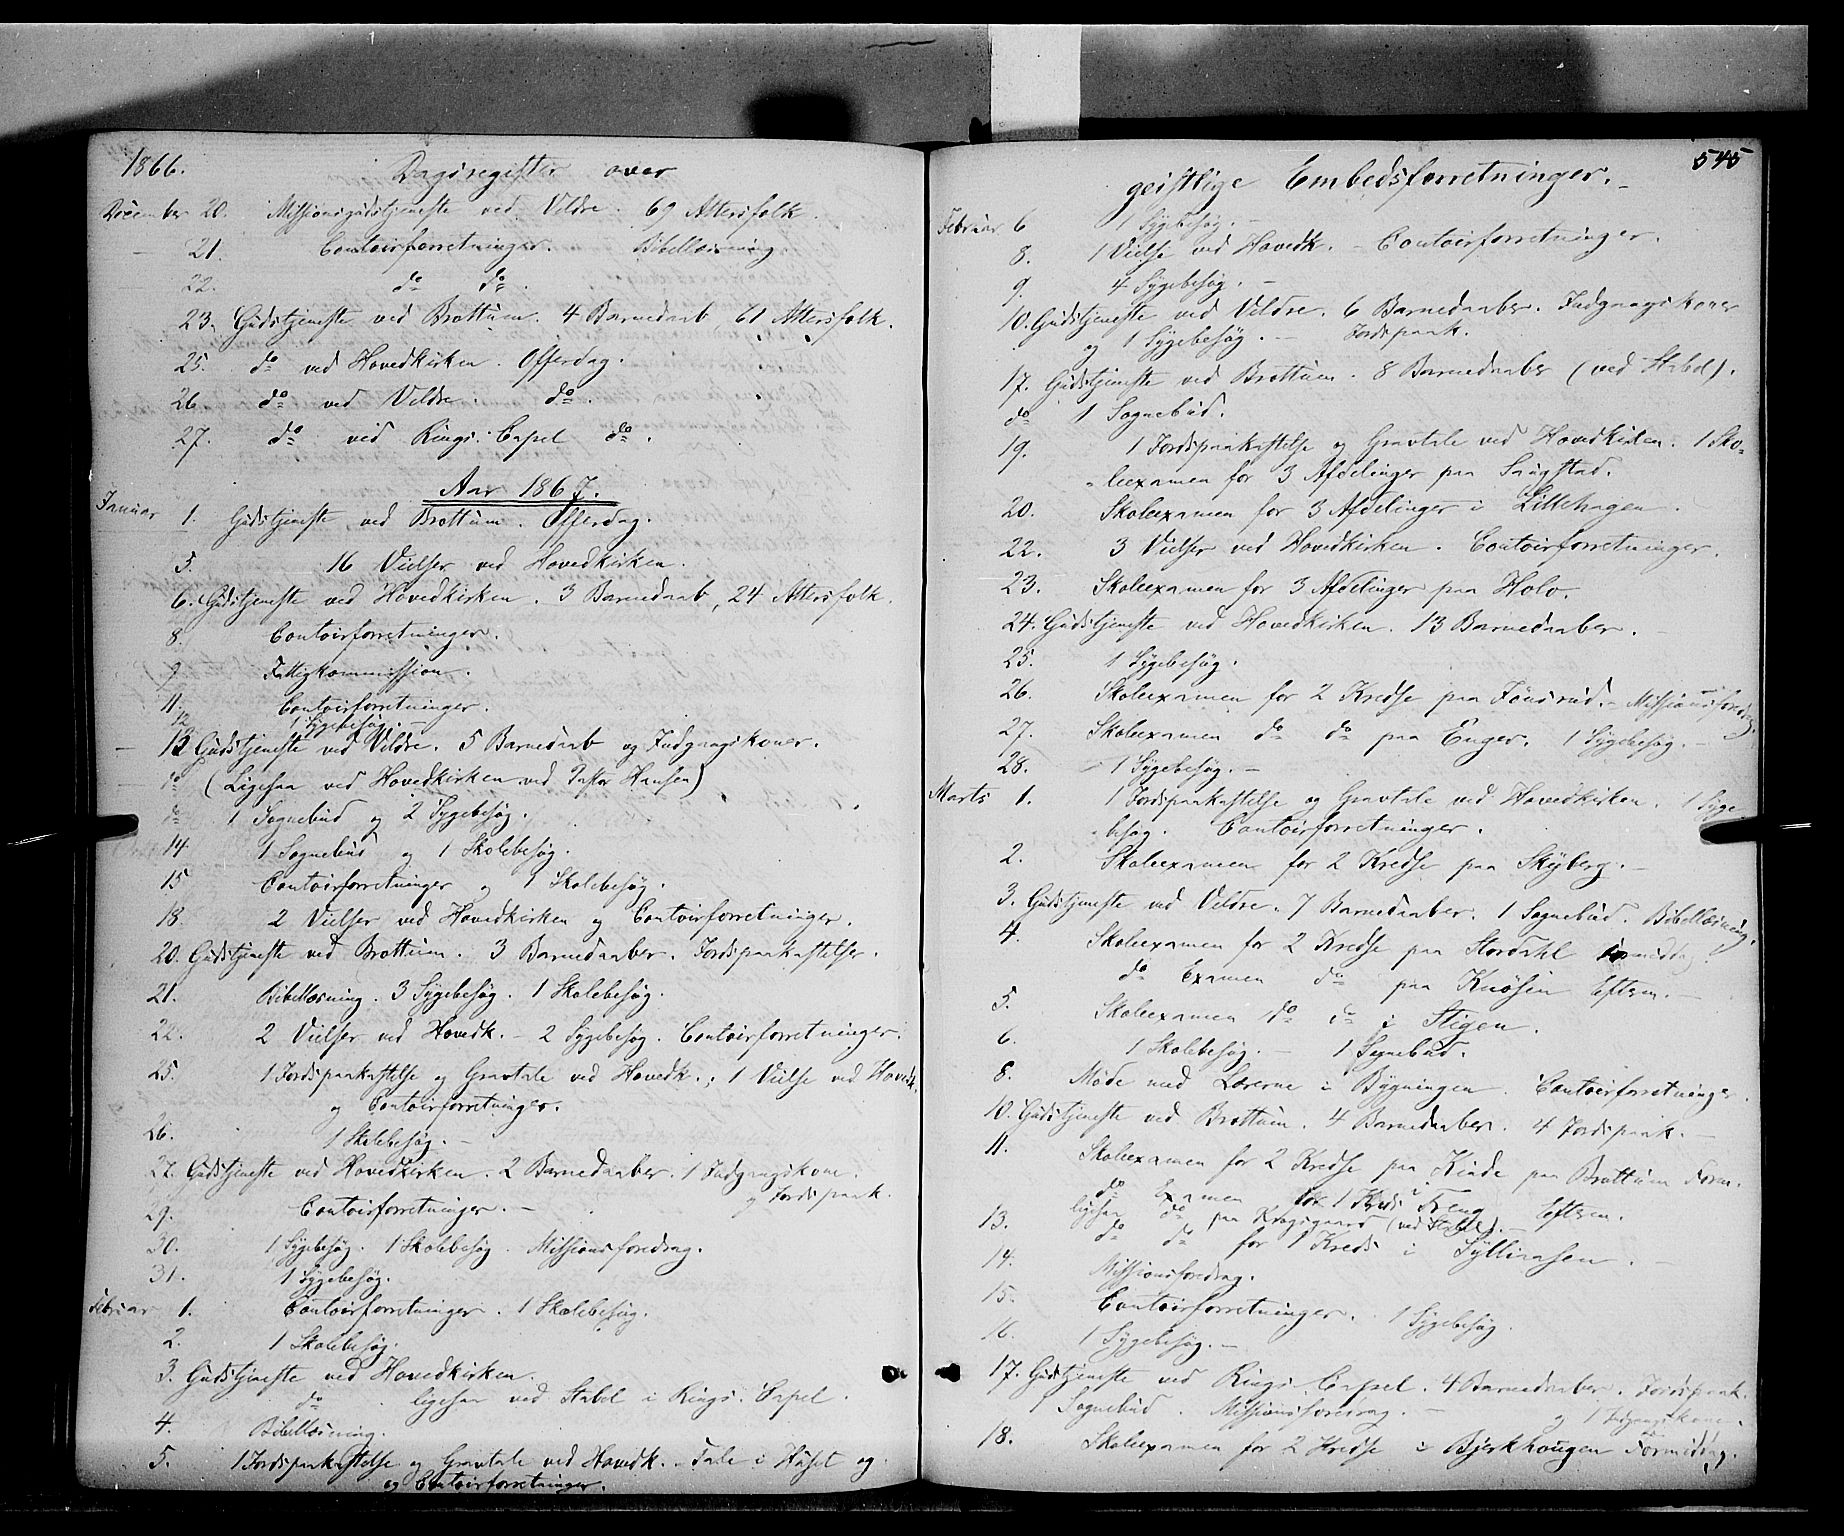 1866. Dagsregister over
December 20. Missionsgudstjeneste ved Veldre. 69 Altersfolk.
21. Contoirforretninger. Bibellæsning
22. do do.
23. Gudstjeneste ved Brøttum. 4 Barnedaab 61 Altersfolk.
25. do ved Hovedkirken. Offerdag.
26. do ved Veldre. do.
27. do ved Rings. Capel do.
Aar 1867.
Januar 1. Gudstjeneste ved Brøttum. Offerdag.
5. 16 Vielser ved Hovedkirken.
6. Gudstjeneste ved Hovedkirken. 3 Barnedaab, 24 Altersfolk.
8. Contoirforretninger.
9 Fattigkommission.
11. Contoirforretninger.
12. 1 Sygebesøg.
13 Gudstjeneste ved Veldre. 5 Barnedaab og Indgangskoner.
do (Ligesaa ved Hovedkirken ved Pastor Hansen)
do 1 Sognebud og 2 Sygebesøg.
14. 1 Sognebud og 1 Skolebesøg.
15 Contoirforretninger og 1 Skolebesøg.
18. 2 Vielser ved Hovedkirken og Contoirforretninger.
20. Gudstjeneste ved Brøttum. 3 Barnedaaber. Jordspaakastelser.
21. Bibellæsning. 3 Sygebesøg. 1 Skolebesøg.
22. 2 Vielser ved Hovedk. – 2 Sygebesøg. Contoirforretninger.
25. 1 Jordspaakastelse og Gravtale ved Hovedk.; 1 Vielse ved Hovedk.
og Contoirforretninger.
26. 1 Skolebesøg. –
27. Gudstjeneste ved Hovedkirken. 2 Barnedaaber. 1 Indgangskone.
og Jordspaak.
29. Contoirforretninger. –
30. 1 Sygebesøg. 1 Skolebesøg. Missionsforedrag.
31. 1 Sygebesøg.
Februar 1. Contoirforretninger. 1 Skolebesøg.
2. 1 Skolebesøg.
3. Gudstjeneste ved Hovedkirken.
do ligesaa ved Stabel i Rings. Capel.
4. Bibellæsning.
5. 1 Jordspaakastelse og Gravtale ved Hovedk. – Tale i Huset og
og Contoirforretninger.
545
geistlige Embedsforretninger. –
Februar 6 1 Sygebesøg. –
8. 1 Vielse ved Hovedk. – Contoirforretninger.
9. 4 Sygebesøg. –
10. Gudstjeneste ved Veldre. 6 Barnedaaber. Indgangskoner
og 1 Sygebesøg. – Jordspaak.
17. Gudstjeneste ved Brøttum. 8 Barnedaaber (ved Stabel).
do 1 Sognebud.
19. 1 Jordspaakastelse og Gravtale ved Hovedkirken. 1 Sko-
leexamen for 3 Afdelinger paa Saugstad.
20. Skoleexamen for 3 Afdelinger i Lillehagen.
22. 3 Vielser ved Hovedkirken. Contoirforretninger.
23. Skoleexamen for 3 Afdelinger paa Holo.
24. Gudstjeneste ved Hovedkirken. 13 Barnedaaber. –
25. 1 Sygebesøg.
26. Skoleexamen for 2 Kredse paa Fønsrud. – Missionsforedrag.
27. Skoleexamen do do paa Enger. 1 Sygebesøg. –
28. 1 Sygebesøg. –
Marts 1. 1 Jordspaakastelse og Gravtale ved Hovedkirken. 1 Syge
besøg. Contoirforretninger.
2. Skoleexamen for 2 Kredse paa Skyberg. –
3. Gudstjeneste ved Veldre. 7 Barnedaaber. 1 Sognebud. Bibellæsning.
4. Skoleexamen for 2 Kredse paa Stordahl Formiddag.
do Examen do paa Knøsen Efterm. –
5. Skoleexamen do do i Stigen.
6. 1 Skolebesøg. – 1 Sognebud.
8. Møde med Lærerne i Bygningen. Contoirforretninger.
10. Gudstjeneste ved Brøttum. 4 Barnedaaber. 4 Jordspaak. –
11. Skoleexamen for 2 Kredse paa Kinde paa Brøttum Form.
do Examen for 1 Kreds i Treng Efterm.
13. ligesaa do paa Kragsgaard (ved Stabel). –
do do for 1 Kreds i Syllinasen. –
14. Missionsforedrag.
15. Contoirforretninger. 1 Sygebesøg.
16. 1 Sygebesøg. –
17. Gudstjeneste ved Rings. Capel. 4 Barnedaaber. Jordspaak.
1 Sognebud. Missionsforedrag. – og 1 Indgangskone.
18. Skoleexamen for 2 Kredse i Bjerkhougen Formiddag.